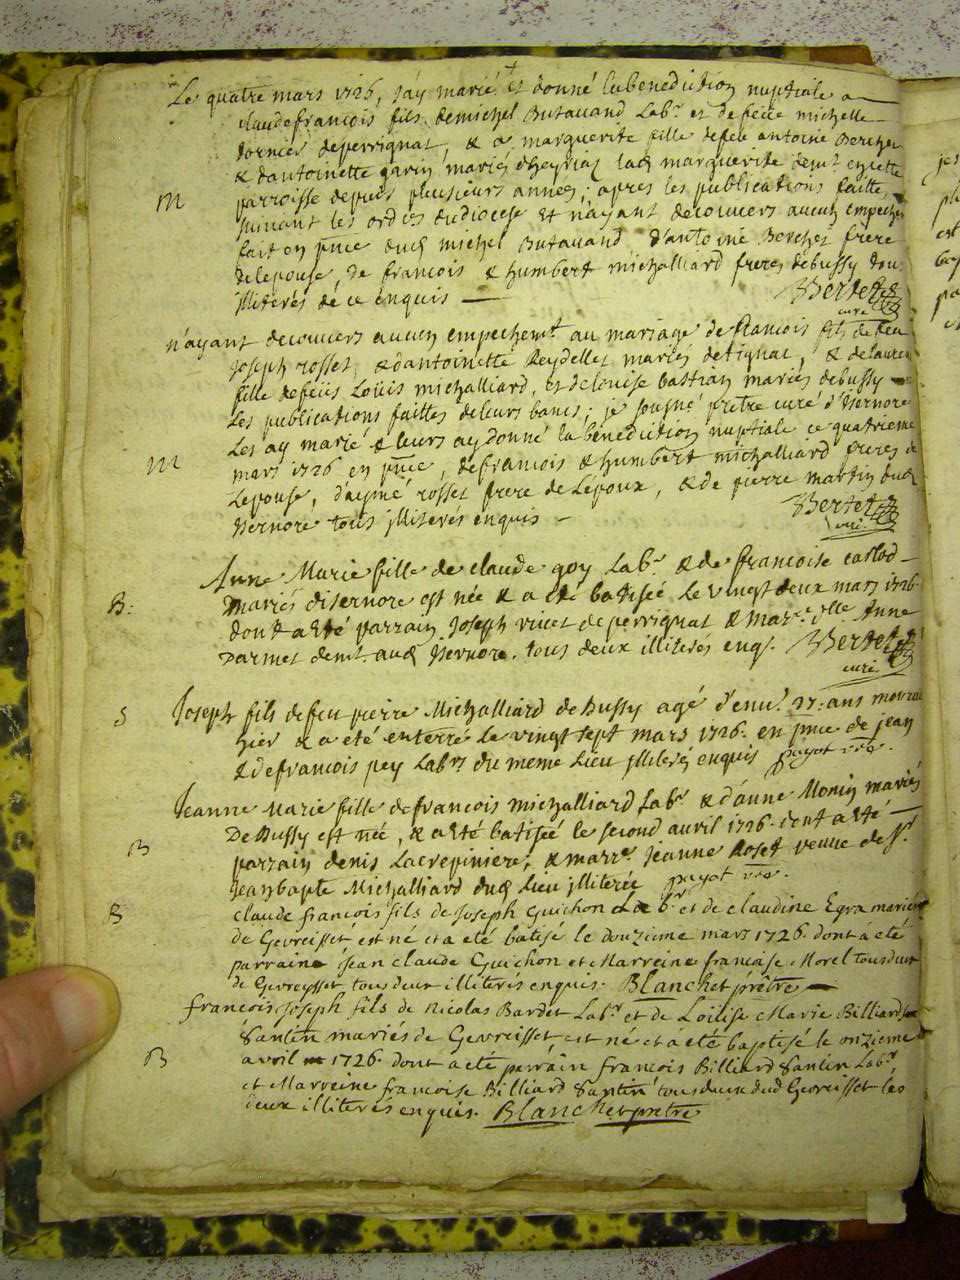 Le quatre mars 1726, j'ay marié et donné la benediction nuptiale a
claude françois fils de michel Butavand Labr. et de feüe michelle
dornier de perrignat, & a marguerite fille de feu antoine Berchet
& d'antoinette garin mariés d'heyriaz lad marguerite demt. en cette
M
parroisse depuis plusieurs années; apres les publications faittes
suivant les ordres du diocese et n'ayant decouvers aucun empechet
fait en pnce dud michel Butavand, d'antoine Berchet frere
de lepouse, de françois & humbert michalliard freres debussy tous
illiterés de ce enquis
Bertet
curé
n'ayant decouvers aucun empechemt. au mariage de francois fils de feu
joseph rosset, & d'antoinette Reydellet mariés de tignat, & de laurence
fille de feüs Loüis michalliard, et de loüise bastian mariés debussy
Les publications faittes de leurs bancs; je sousné prêtre curé d'Isernore
Les ay marié & leurs ay donné la bénédiction nuptiale ce quatrieme
M
mars 1726 en pnce, de françois & humbert michalliard freres de
Lepouse, d'aymé rosset frere de Lepoux, & de pierre martin dud
Isernore tous illiterés enquis
Bertet
curé
Anne Marie fille de claude goy Labr. & de françoise carlod
B:
mariés disernore est née & a eté batisée le vingt deux mars 1726.
dont a eté parrain Joseph vuet de perrignat & marre. jlle Anne
parmet demt. aud Isernore. tous deux illiterés enqs.
Bertet
curé
S
Joseph fils de feu pierre Michalliard de Bussy agé d'envn. 27. ans mourut
hier & a eté enterré le vingt sept mars 1726. en pnce de jean
& de francois pey Labrs du meme Lieu jlliterés enquis payot vre.
Jeanne Marie fille de françois michalliard Labr & d'anne Monin mariés
De Bussy est née, & a eté batisée le second avril 1726. dont a eté
B
parrain denis Lacrepiniere, & marre. jeanne Roset veuve de Sr.
jean bapte Michalliard dud Lieu jlliterée payot vre.
B
claude françois fils de Joseph Guichon Labr et de claudine Egra mariés
de Gevreisset est né et a eté batisé le douzieme mars 1726. dont a eté
parrain jean claude Guichon et Marreine francoise Morel tous deux
de Gevreysset tous deux illiterés enquis. Blanchet prêtre
francois Joseph fils de Nicolas Bardet Labr. et de Loüise Marie Billiard
Santin mariés de Gevreisset est né et a été baptisé le onzieme
B
avril 1726. dont a eté perrain francois Billiard Santin Labr,
et Marreine francoise Billiard Santin tous deux dud Gevreisset les
deux illiterés enquis. Blanchet prêtre